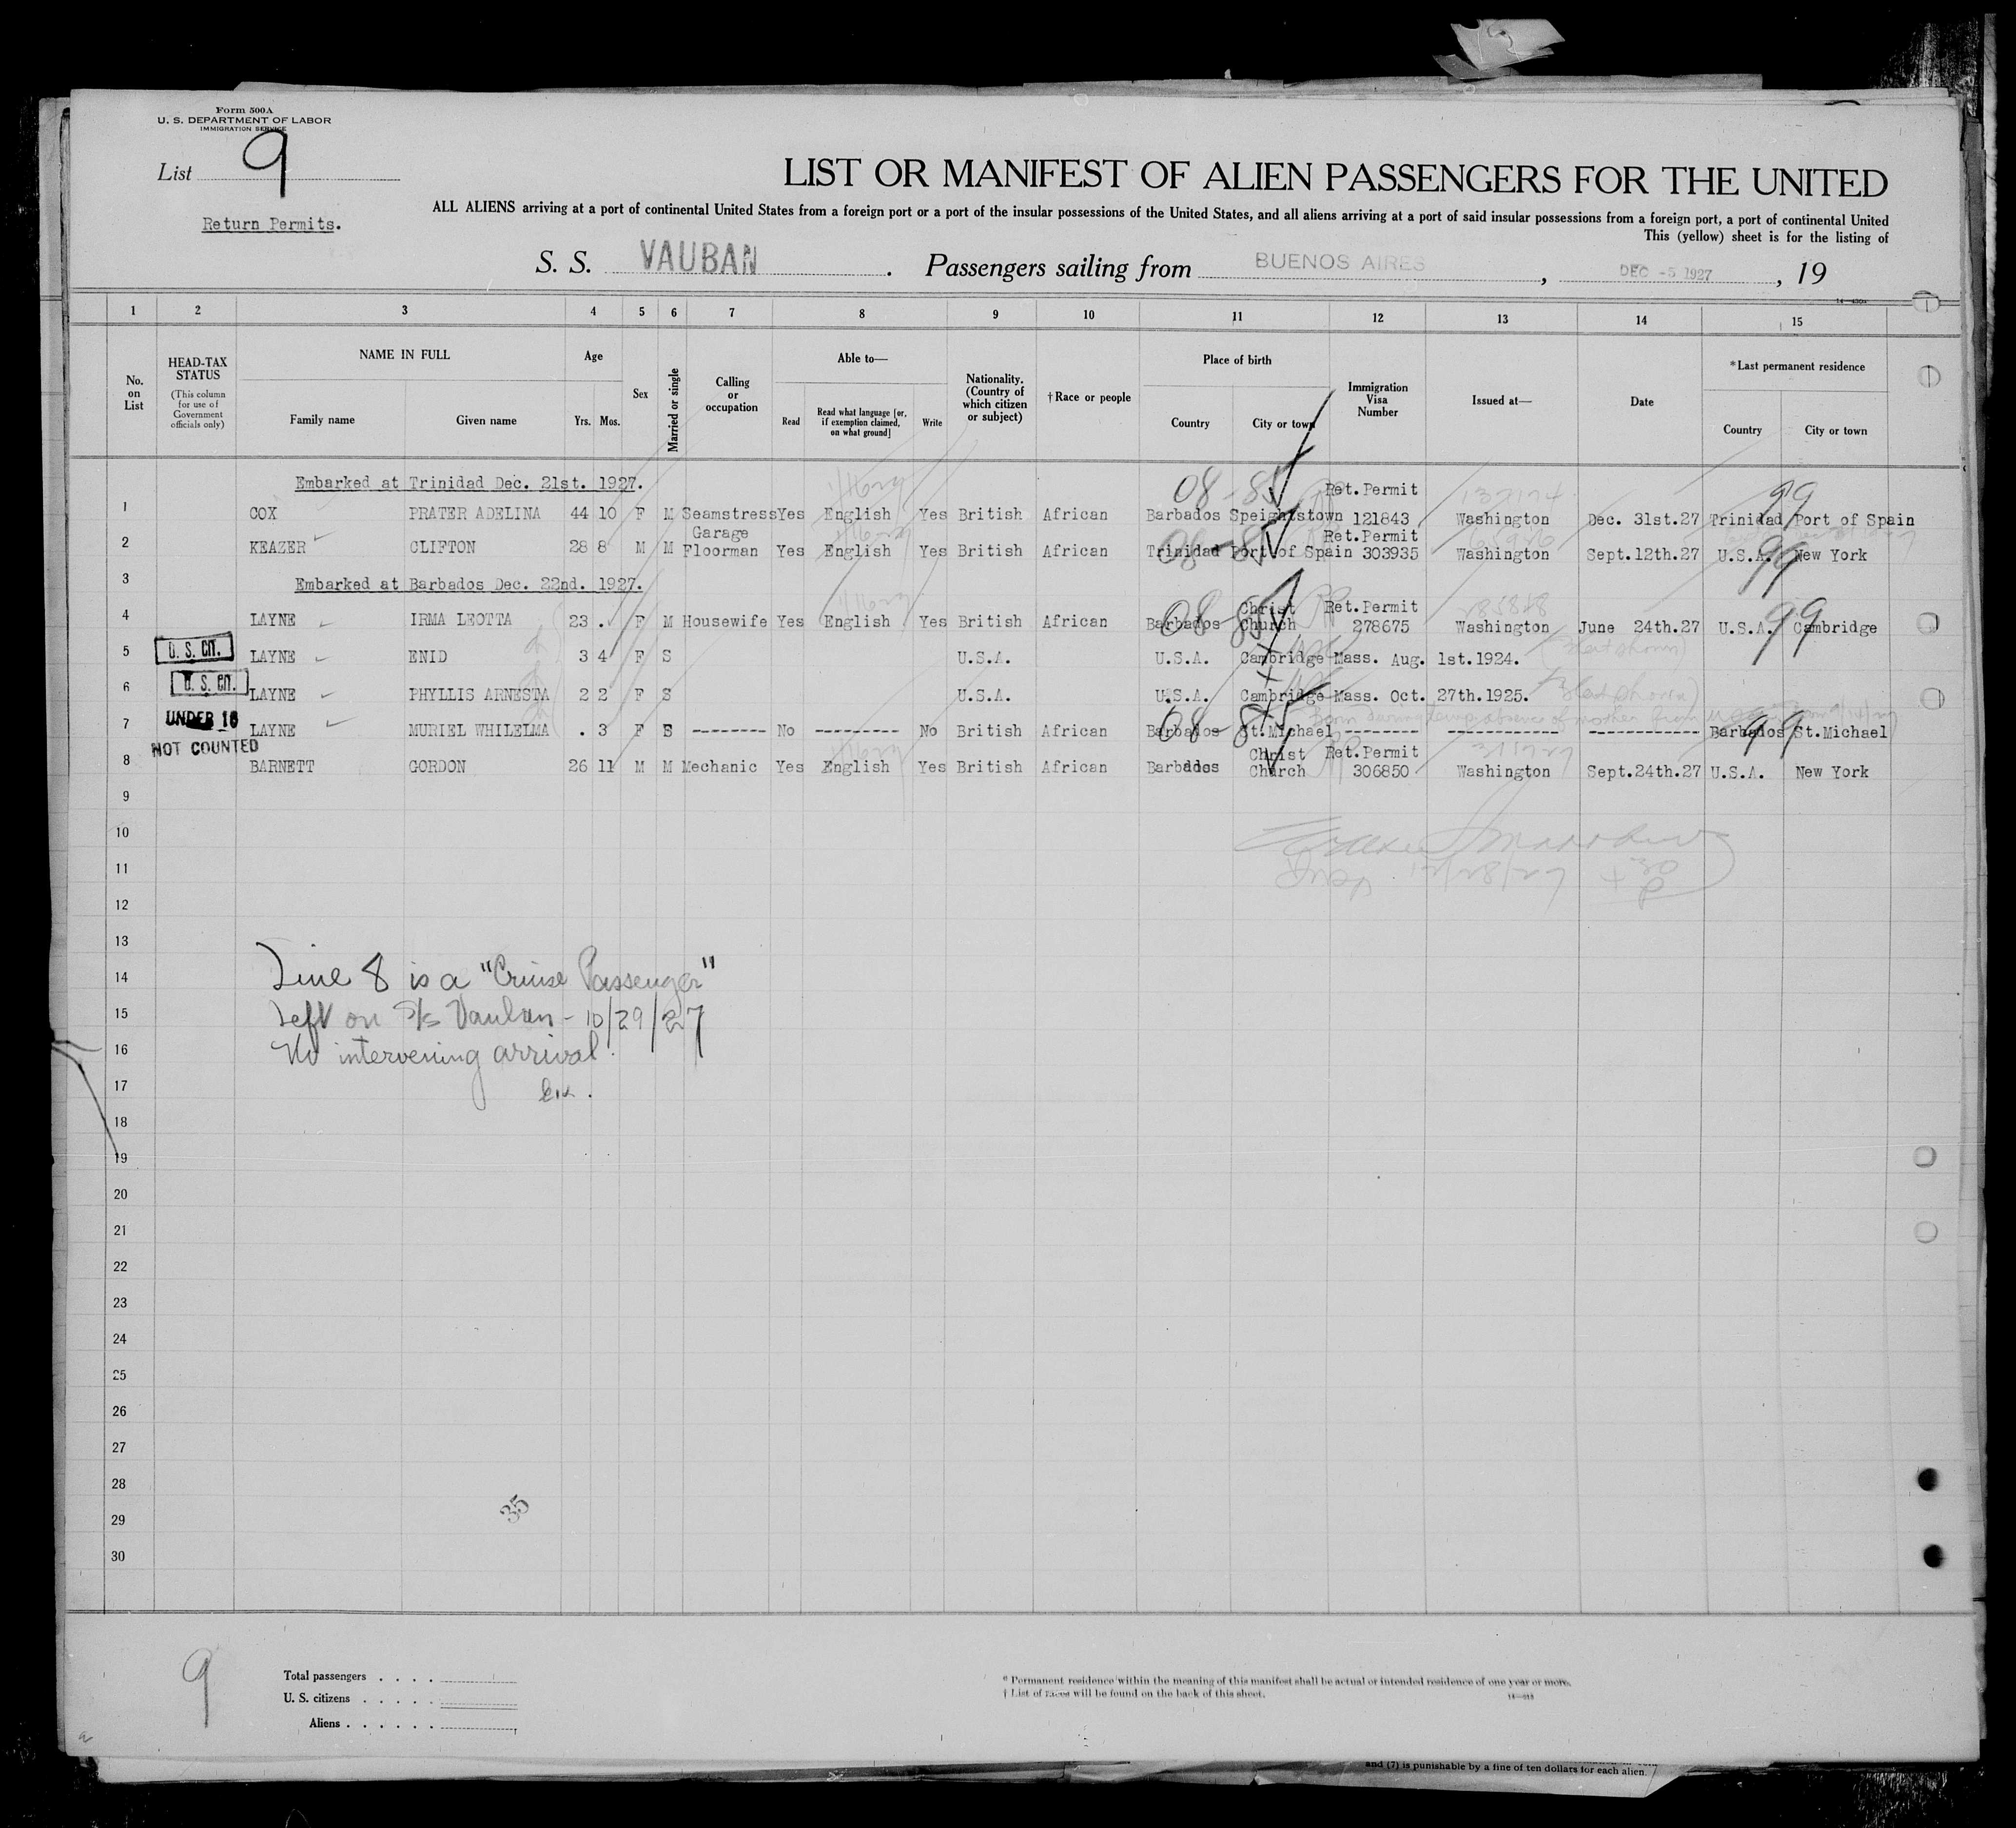 Form 500A
U. S. DEPARTMENT OF LABOR
IMMIGRATION SERVICE
List 9
Return Permits.
LIST OR MANIFEST OF ALIEN PASSENGERS FOR THE UNITED
ALL ALIENS arriving at a port of continental United States from a foreign port or a port of the insular possessions of the United States, and all aliens arriving at a port of said insular possessions from a foreign port, a port of continental United
This (yellow) sheet is for the listing of
S. S. VAUBAN. Passengers sailing from BUENOS AIRES, DEC -5 1927, 19
1 2 3 4 5 6 7 8 9 10 11 12 13 14 15
No. on List
HEAD-TAX STATUS
(This column for use of Government officials only)
NAME IN FULL
Family name Given name
Age
Yrs. Mos.
Sex
Married or single
Calling or occupation
Able to—
Read
Read what language [or, if exemption claimed, on what ground]
Write
Nationality. (Country of which citizen or subject)
†Race or people
Place of birth
Country City or town
Immigration Visa Number
Issued at—
Date
*Last permanent residence
Country City or town
Embarked at Trinidad Dec. 21st. 1927.
08-85 99
1 COX PRATER ADELINA 44 10 F M Seamstress Yes English Yes British African Barbados Speightstown Ret.Permit 121843 Washington Dec. 31st.27 Trinidad Port of Spain
2 KEAZER CLIFTON 28 8 M M Garage Floorman Yes English Yes British African Trinidad Port of Spain Ret.Permit 303935 Washington Sept.12th.27 U.S.A. New York
99
3 Embarked at Barbados Dec. 22nd. 1927.
4 LAYNE IRMA LEOTTA 23 . F M Housewife Yes English Yes British African Barbados Christ Church Ret.Permit 278675 Washington June 24th.27 U.S.A. Cambridge
08-85 99
U. S. CIT.
5 LAYNE ENID 3 4 F S U.S.A. U.S.A. Cambridge Mass. Aug. 1st.1924.
U. S. CIT.
6 LAYNE PHYLLIS ARNESTA 2 2 F S U.S.A. U.S.A. Cambridge Mass. Oct. 27th.1925.
Born during temp absence of mother from
UNDER 16
7 LAYNE MURIEL WHILELMA . 3 F S -------- No --------- No British African Barbados St.Michael -------- ------------ ------------ Barbados St.Michael
08-85 99
NOT COUNTED
8 BARNETT GORDON 26 11 M M Mechanic Yes English Yes British African Barbados Christ Church Ret.Permit 306850 Washington Sept.24th.27 U.S.A. New York
9
10
11
12
13
14
15
16
17
18
19
20
21
22
23
24
25
26
27
28
29
30
Line 8 is a "Cruise Passenger"
Left on S/s Vauban - 10/29/27
No intervening arrival.
35
9
Total passengers . . . .
U. S. citizens . . . . .
Aliens . . . . . .
* Permanent residence within the meaning of this manifest shall be actual or intended residence of one year or more.
† List of races will be found on the back of this sheet.
and (7) is punishable by a fine of ten dollars for each alien.